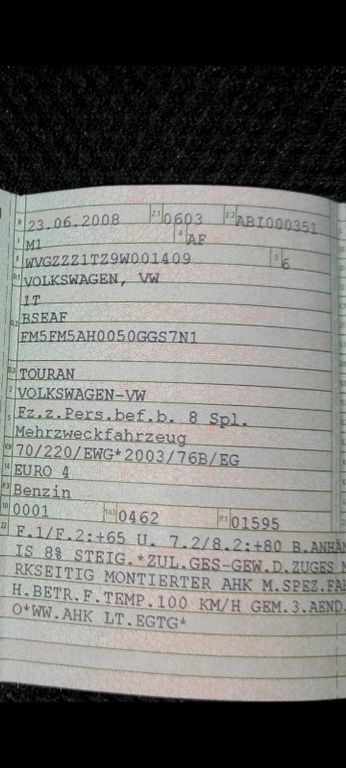 B 23.06.2008 2.1 0603 2.2 ABI000351
J M1 4 AF
E WVGZZZ1TZ9W001409 3 6
D.1 VOLKSWAGEN, VW
1T
D.2 BSEAF
FM5FM5AH0050GGS7N1
D.3 TOURAN
2 VOLKSWAGEN-VW
5 Fz.z.Pers.bef.b. 8 Spl.
Mehrzweckfahrzeug
V.9 70/220/EWG*2003/76B/EG
14 EURO 4
P.3 Benzin
10 0001 14.1 0462 P.1 01595
22 F.1/F.2:+65 U. 7.2/8.2:+80 B.ANHÄN
IS 8% STEIG.*ZUL.GES-GEW.D.ZUGES
RKSEITIG MONTIERTER AHK M.SPEZ.FA
H.BETR.F.TEMP.100 KM/H GEM.3.AEND.
O*WW.AHK LT.EGTG*